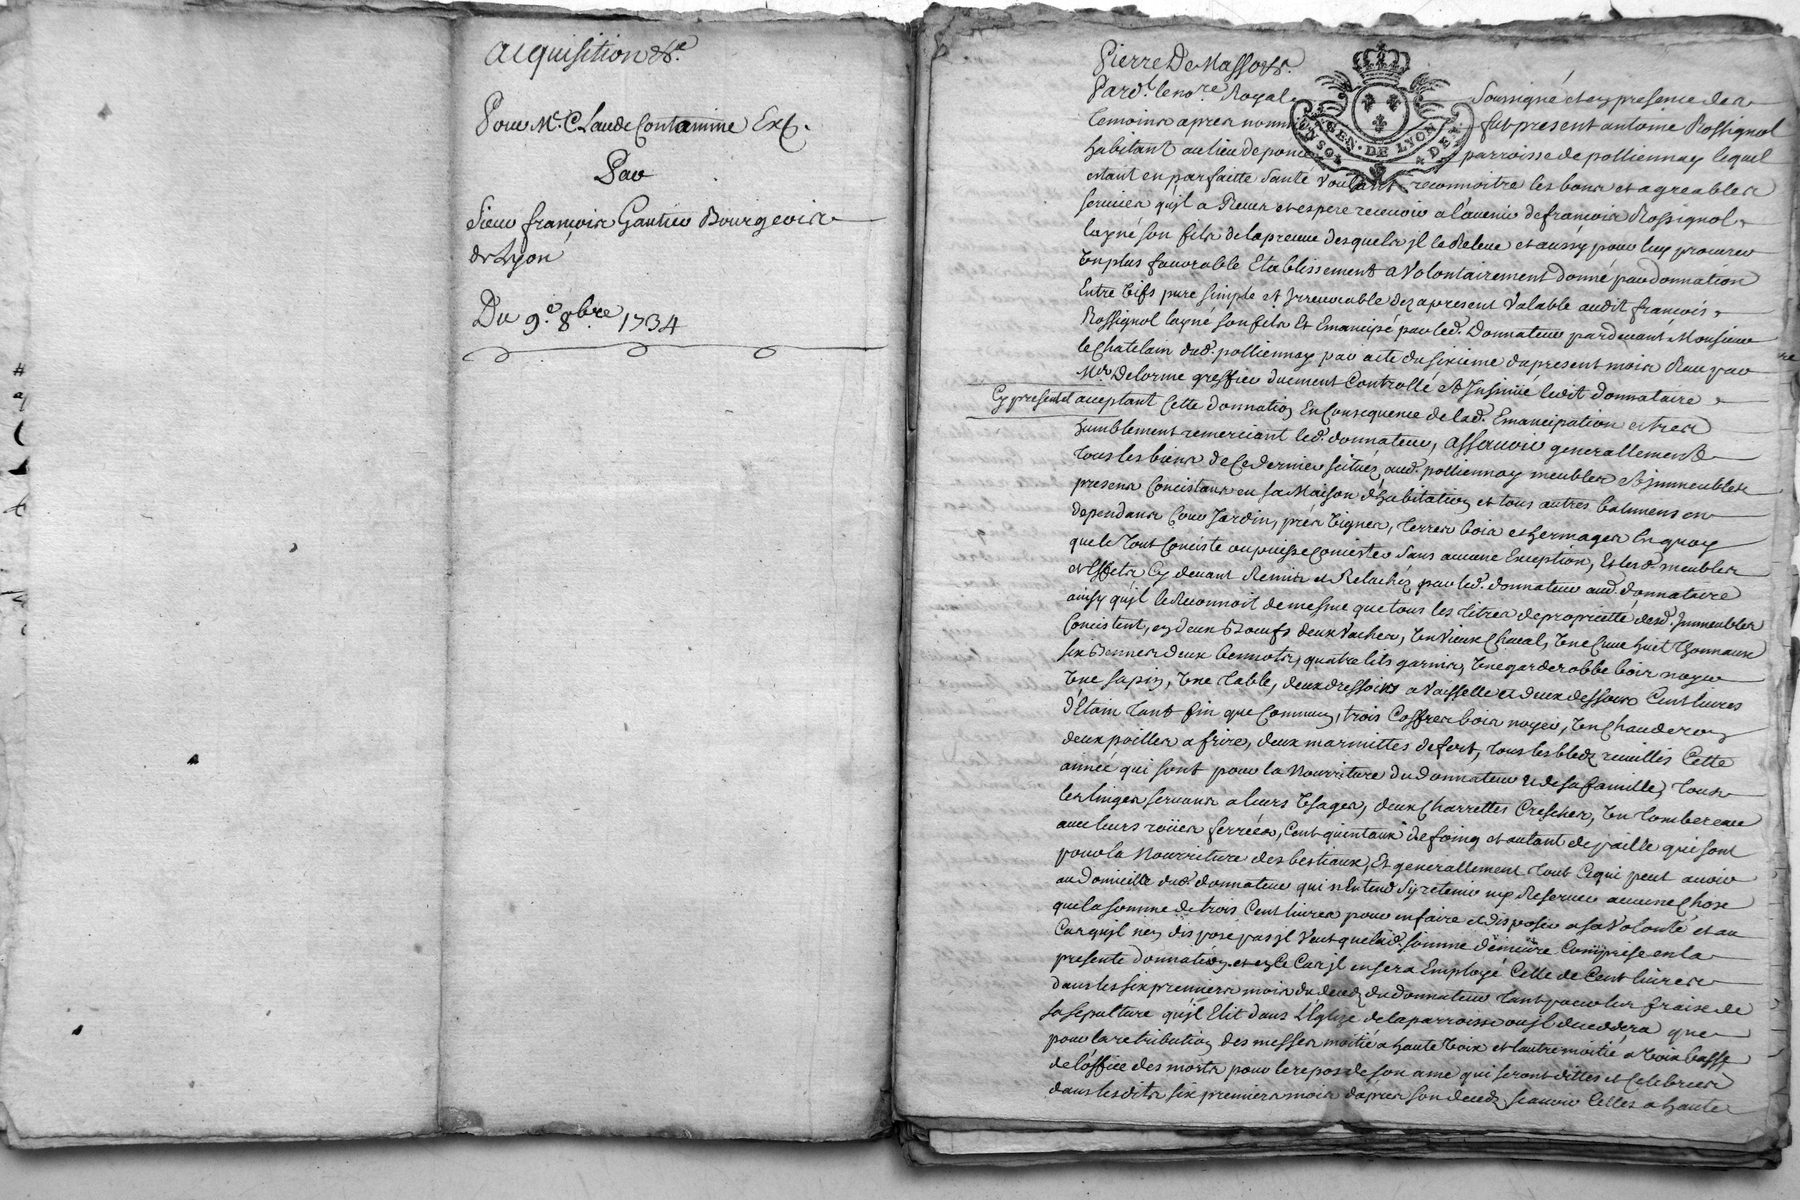 acquisition &c.
Pour Mr. Claude Contamine Exc.
Par
Sieur françois Gautier Bourgeois
de Lyon
Du 9.e 8bre 1734
Pierre De Masso &c.
Pard.t le no.re Royal soussigné et en presence des
temoins apres nommés fut present antoine Rossignol
habitant au lieu de parroisse de pollionnay lequel
estant en parfaitte santé voulant reconnoitre les bons et agreables
services qu'jl a Receus et espere recevoir a l'avenir de françois Rossignol
l'ayné son fils de la preuve desquels jl le Releve et aussy pour luy procurer
un plus favorable Etablissement a volontairement donné par donnation
Entre vifs pure simple et jrrevocable dez apresent valable audit françois
Rossignol l'ayné son fils Et Emancipé par led. Donnateur pardevant Monsieur
le Chatelain dud. pollionnay par acte du sixieme du present mois Receu par
Mr. Delorme greffier duement Controllé et Jnsinüé ledit donnataire
Cy present et acceptant Cette donnation En Consequence de lad. Emancipation et tres
humblement remerciant led. donnateur, assavoir generallement
tous les biens de Ce dernier scitués aud. pollionnay meubles et jmmeubles
presens Concistans en sa Maison d'habitation et tous autres batimens en
dependans Cour Jardin, prés vignes, terres bois et hermages En quoy
que le tout Conciste ou puisse Concister sans aucune Exception, Et lesd. meubles
et Effets Cy devant Remis et Relachés par led. donnateur aud. donnataire
ainsy qu'jl le Reconnoit de mesme que tous les titres de proprietté desd. Jmmeubles
Concistent, en deux Boeufs deux vaches, un vieux Cheval, une Cuve huit thonnaux
six Bennes deux bennots, quatre lits garnis, une garderobbe bois noyer
une sapin, une table, deux dressoirs a vaisselle et deux dessous Cent livres
d'étain tant fin que Commun, trois Coffres bois noyer, un Chauderon
deux poilles a frire, deux marmittes de fert, tous les bledz recuillis Cette
année qui sont pour la Nourriture du donnateur et de sa famille, tous
les linges servans a leurs usages, deux Charrettes Cresches, un tombereau
avec leurs roües ferrées, Cent quintaux de foing et autant de paille qui sont
pour la Nourriture des bestiaux, Et generallement tout Ce qui peut avoir
au Domicille dud. donnateur qui n'Entend s'y retenir ny Reserver aucune Chose
que la somme de trois Cent livres pour en faire et disposer a sa volonté et au
Cas qu'jl n'en dispose pas jl veut que lad. somme demeure Comprise en la
presente donnation et en Ce Cas jl en sera Employé Celle de Cent livres
dans les six premiers mois du decez du donnateur tant pour les frais de
sa sepulture qu'jl Elit dans L'Eglize de la parroisse ou jl decedera que
pour la retribution des messes moitié a haute voix et l'autre moitié a voix basse
de l'office des morts pour le repos de son ame qui seront dittes et Celebrées
dans lesdits six premiers mois d'apres son decez scavoir Celles a haute